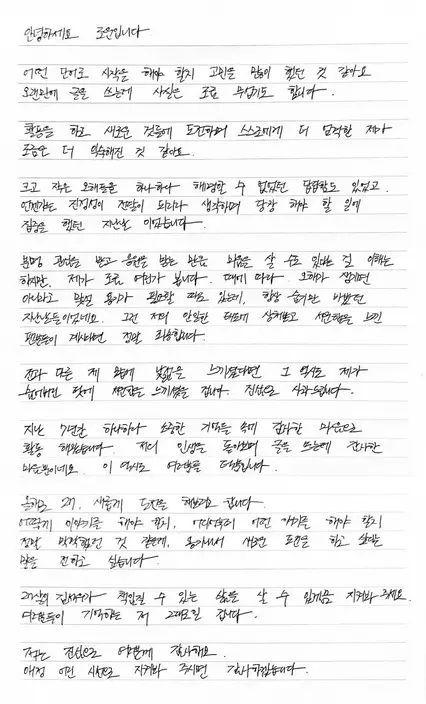 안녕하세요 로운입니다
어떤 단어로 시작을 해야 할지 고민을 많이 했던 것 같아요
오랜만에 글을 쓰는데 사실은 조금 무섭기도 합니다.
활동을 하고 새로운 것들에 도전하며 스스로에게 더 엄격한 제가
조금은 더 익숙해진 것 같아요.
크고 작은 오해들을 하나하나 해명할 수 없었던 답답함도 있었고
언젠가는 진정성이 전달이 되리라 생각하며 당장 해야 할 일에
집중을 했던 지난날 이었습니다.
분명 관심을 받고 응원을 받는 만큼 미움을 살 수도 있다는 걸 이해는
하지만, 제가 조금 여렸나 봅니다. 때에 따라 오해가 생기면
아니라고 말할 용기가 필요할 때도 있는데, 항상 숨기만 바빴던
지난날들이었네요. 그런 저의 안일한 태도에 상처받고 서운함을 느낀
팬분들이 계시다면 정말 죄송합니다.
전과 다른 제 모습에 낯섦을 느끼셨다면 그 역시도 제가
숨어버린 탓에 서운함을 느끼셨을 겁니다. 진심으로 사과드립니다.
지난 7년간 하나하나 소중한 기억들 속에 감사한 마음으로
활동 해왔습니다. 저의 인생을 돌아보며 글을 쓰는데 감사한
마음뿐이네요. 이 역시도 여러분들 덕분입니다.
올해로 27, 새롭게 도전을 해보려고 합니다.
어떻게 이야기를 해야 할지, 어디서부터 어떤 얘기를 해야 할지
정말 막막했던 것 같은데, 용기내서 서툰 표현을 하고 싶다는
말을 전하고 싶습니다.
27살의 김석우가 책임질 수 있는 삶을 살 수 있게끔 지켜봐 주세요.
여러분들이 기억하는 저 그대로일 겁니다.
저는 진심으로 여러분께 감사해요.
애정 어린 시선으로 지켜봐 주시면 감사하겠습니다.